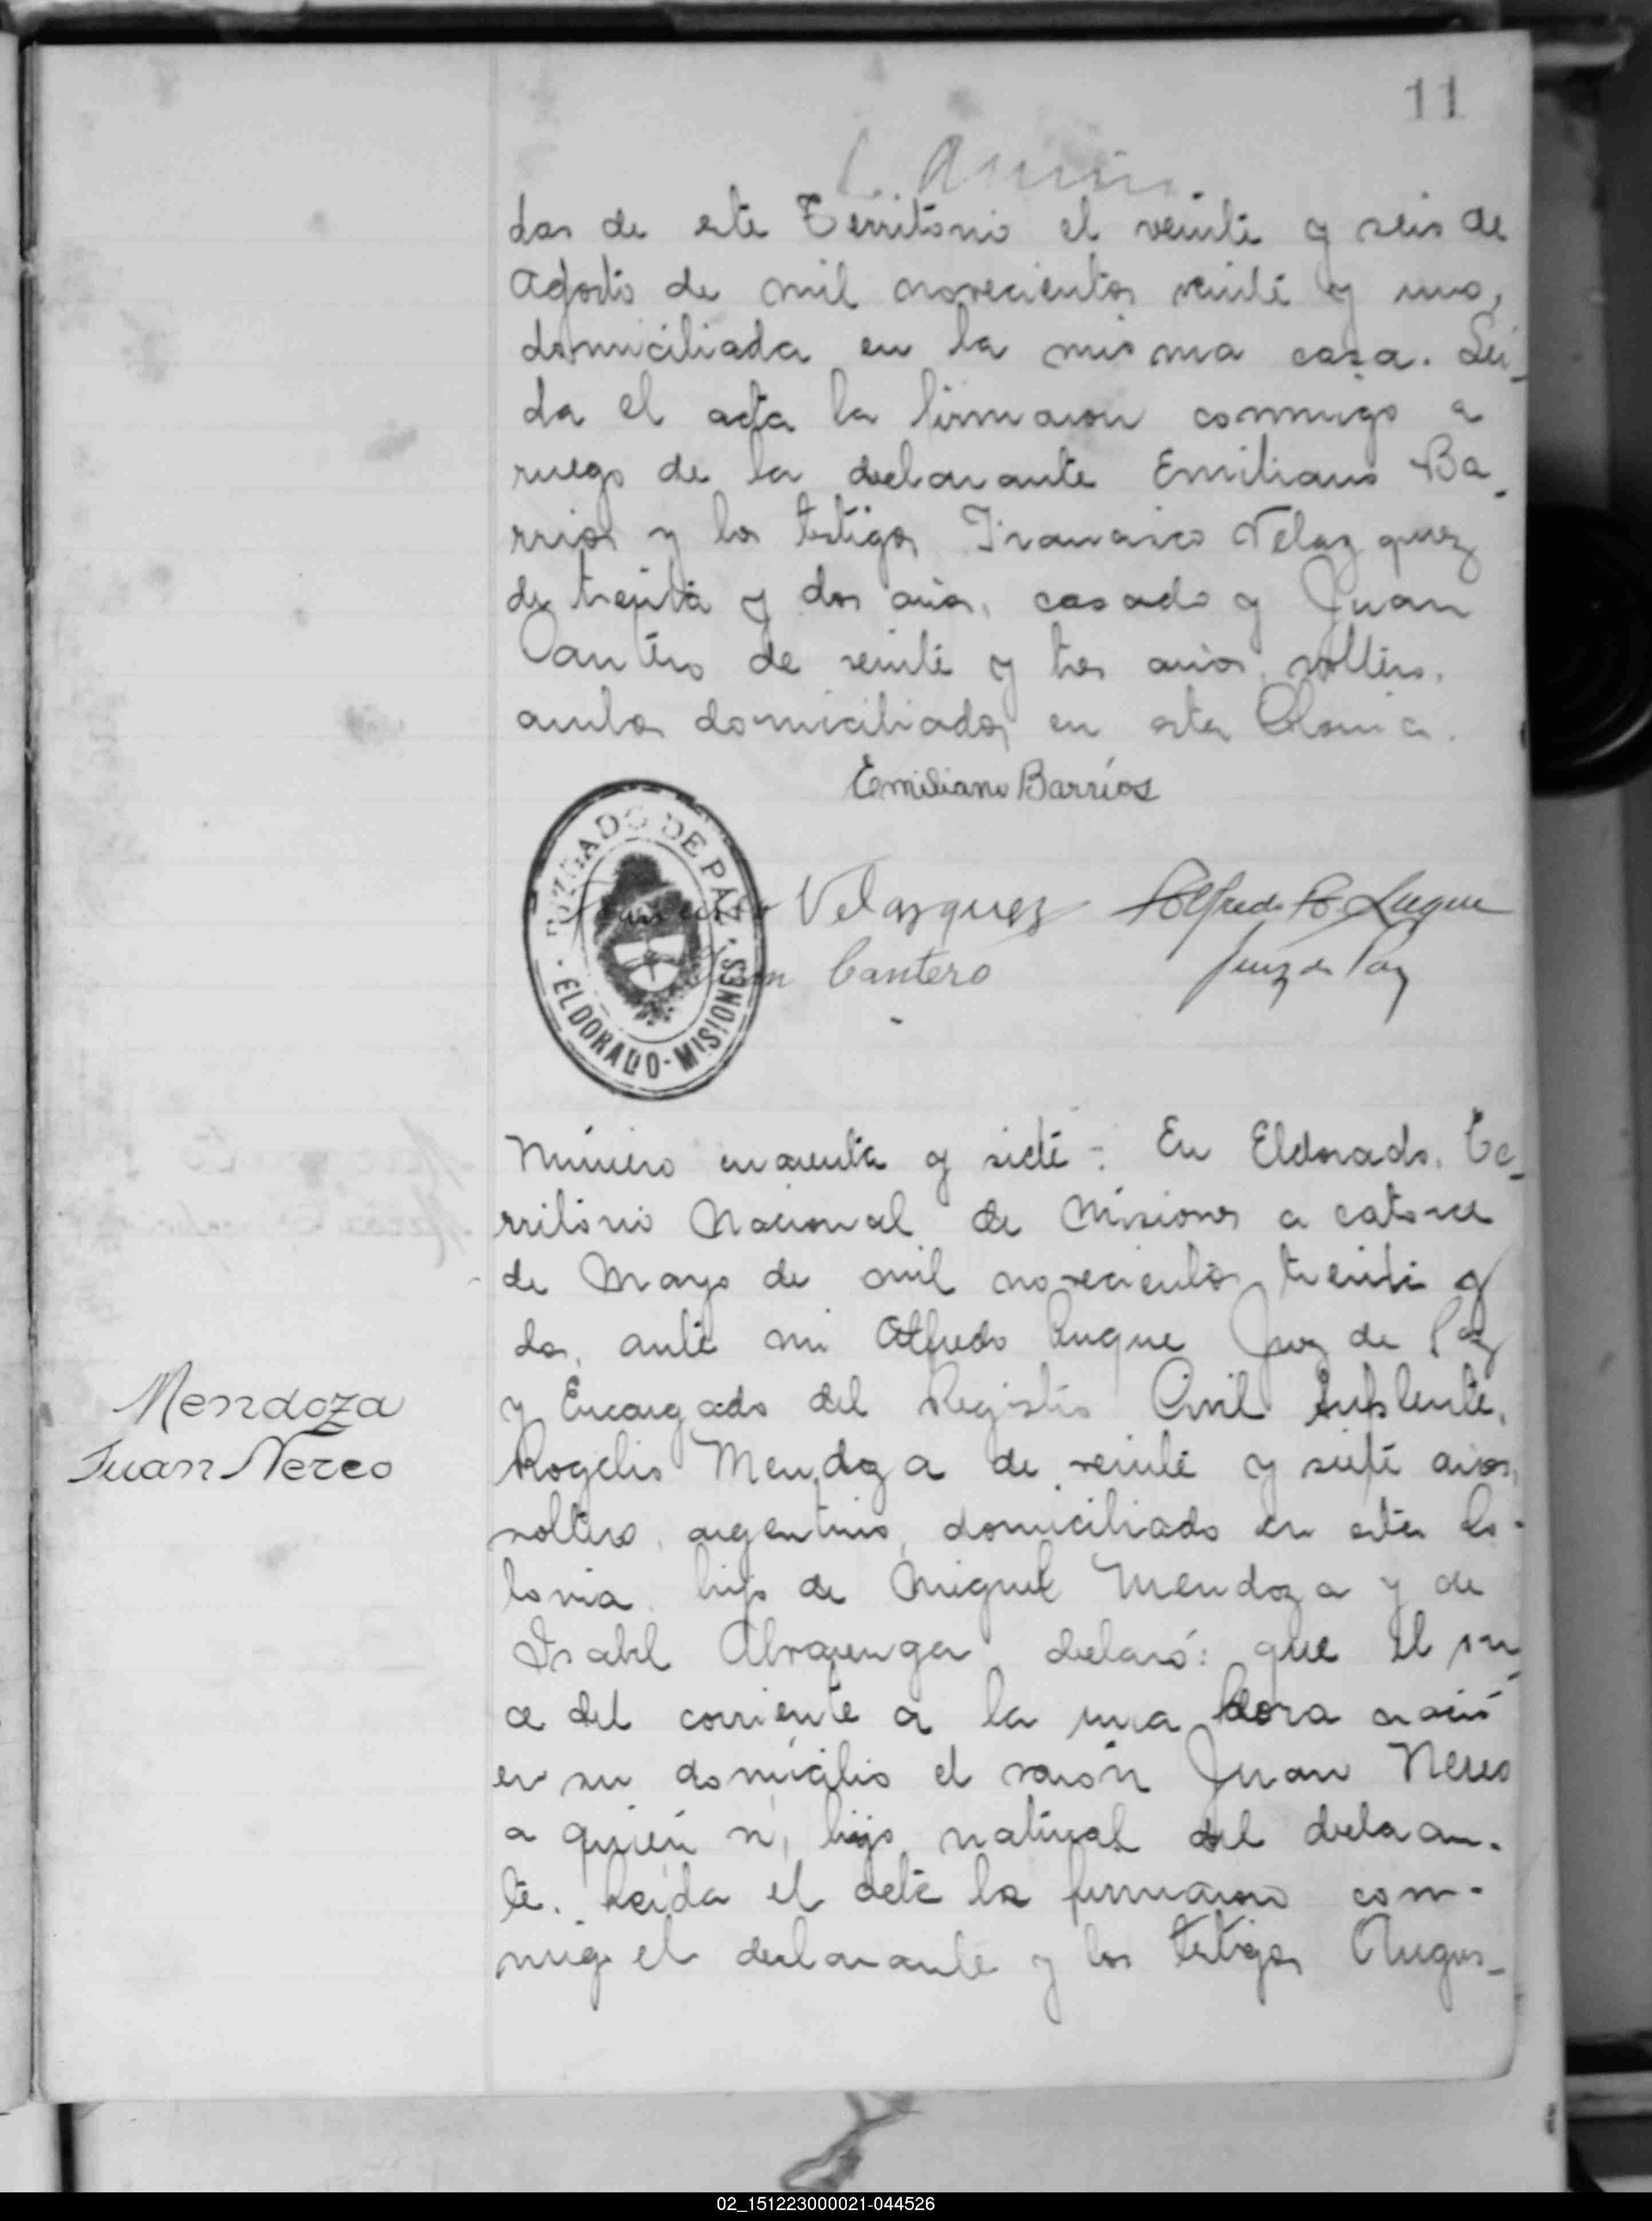 11
das de este Territorio el veinte y seis de
Agosto de mil novecientos veinte y uno,
domiciliada en la misma casa. Lei-
da el acta la firmaron conmigo a
ruego de la declarante Emiliano Ba-
rrios y los testigos Francisco Velazquez
de treinta y dos años, casado y Juan
Cantero de veinte y tres años, soltero,
ambos domiciliados en esta Colonia.
Emiliano Barrios
JUZGADO DE PAZ
Francisco Velazquez
Alfredo R. Luque
Juan Cantero
Juez de Paz
· ELDORADO - MISIONES ·
Número cuarenta y siete: En Eldorado, Te-
rritorio Nacional de Misiones a catorce
de Mayo de mil novecientos treinta y
dos, ante mi Alfredo Luque Juez de Paz
y Encargado del Registro Civil Suplente,
Mendoza
Juan Nereo
Rogelio Mendoza de veinte y siete años,
soltero, argentino, domiciliado en esta Co-
lonia, hijo de Miguel Mendoza y de
Isabel Alvarenga declaró: que el on-
ce del corriente a la una hora nació
en su domicilio el varón Juan Nereo
a quien ví, hijo natural del declaran-
te. Leida el acta la firmaron con-
migo el declarante y los testigos Augus-
02_151223000021-044526